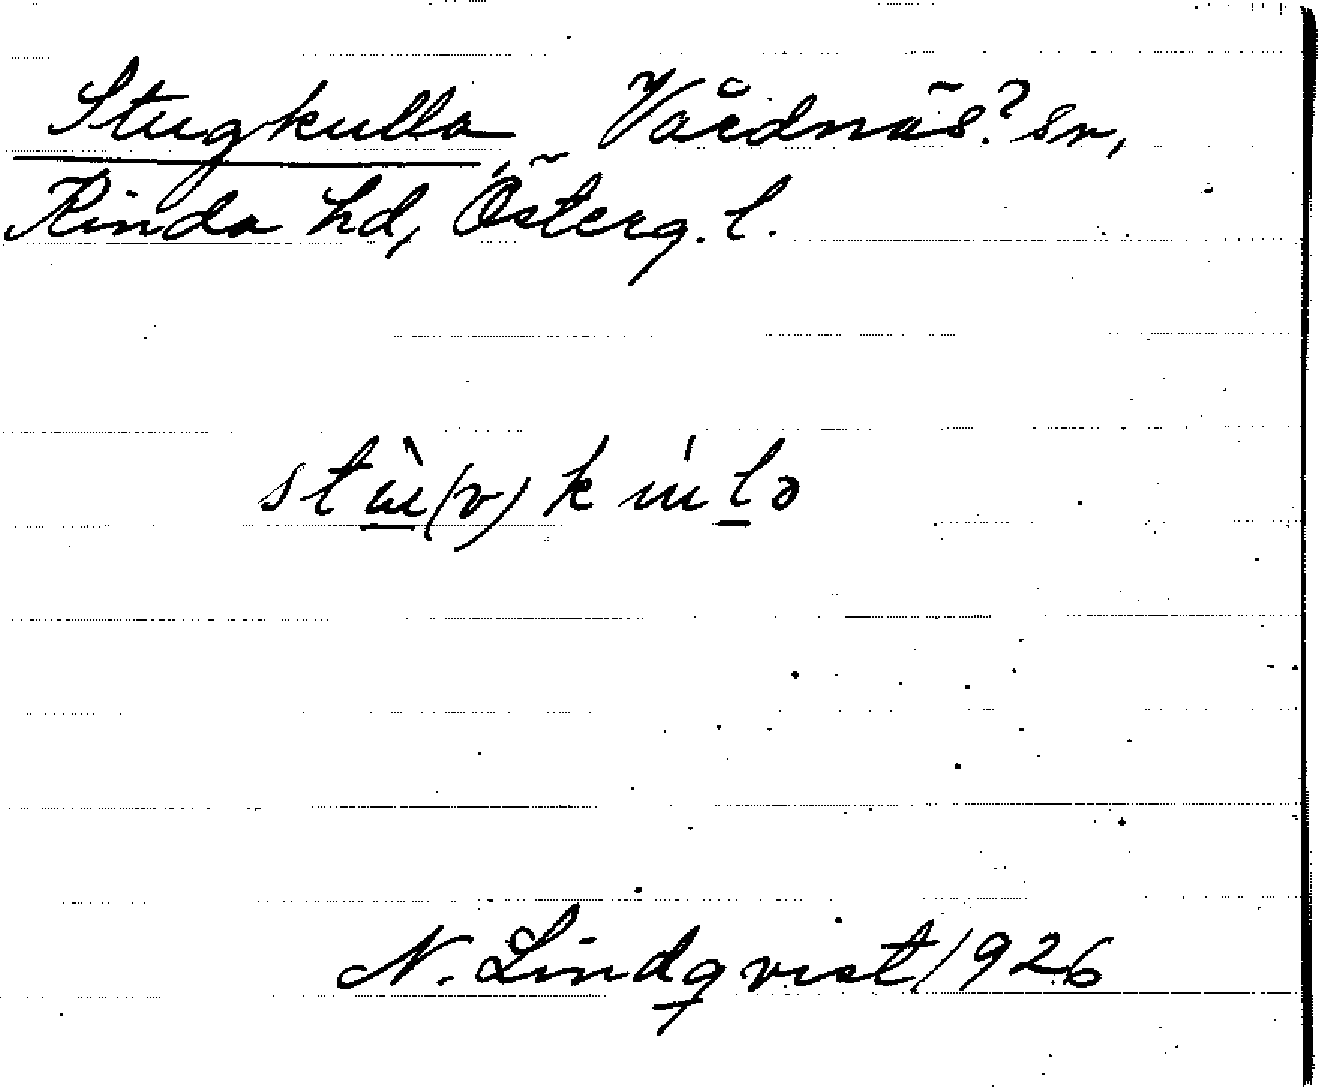 Stugkulla, Vårdnäs? sn,
Kinda hd, Österg. l.
stù(v)kúlə
N. Lindqvist 1926